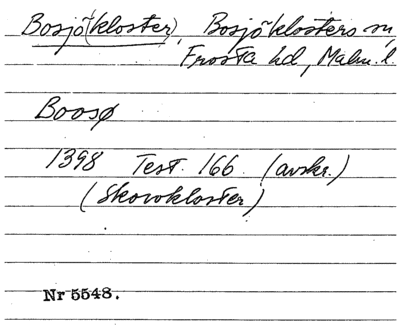 Bosjö(kloster), Bosjöklosters sn,
Frosta hd, Malm. l.
Boosø
1398 Test. 166. (avskr.)
(Skovkloster)
Nr 5548.